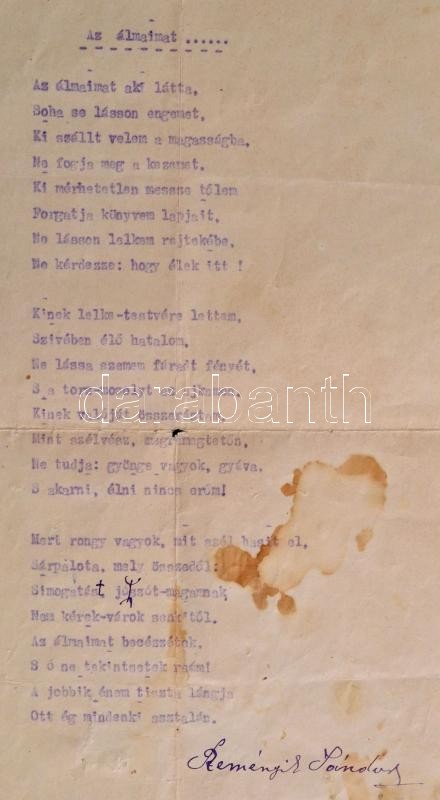 Az álmaimat ......
Az álmaimat aki látta,
Soha se lásson engemet,
Ki szállt velem a magasságba,
Ne fogja meg a kezemet.
Ki mérhetetlen messze tőlem
Forgatja könyvem lapjait,
Ne lásson lelkem rejtekébe,
Ne kérdezze: hogy élek itt !
Kinek lelke-testvére lettem,
Szivében élő hatalom,
Ne lássa szemem fáradt fényét,
S a torz-mosolyt az ajkamon.
Kinek valóját
Mint szélvész, megremegtetőn,
Ne tudja: gyönge vagyok, gyáva.
S akarni, élni nincs erőm!
Mert rongy vagyok, mit szél hasit el,
Sárpalota, mely összedől:
Simogatást jószót-magamnak
Nem kérek-várok senkitől.
Az álmaimat becézzétek,
S ó ne tekintsetek reám!
A jobbik énem tiszta lángja
Ott ég mindenki asztalán.
Reményik Sándor
darabanth